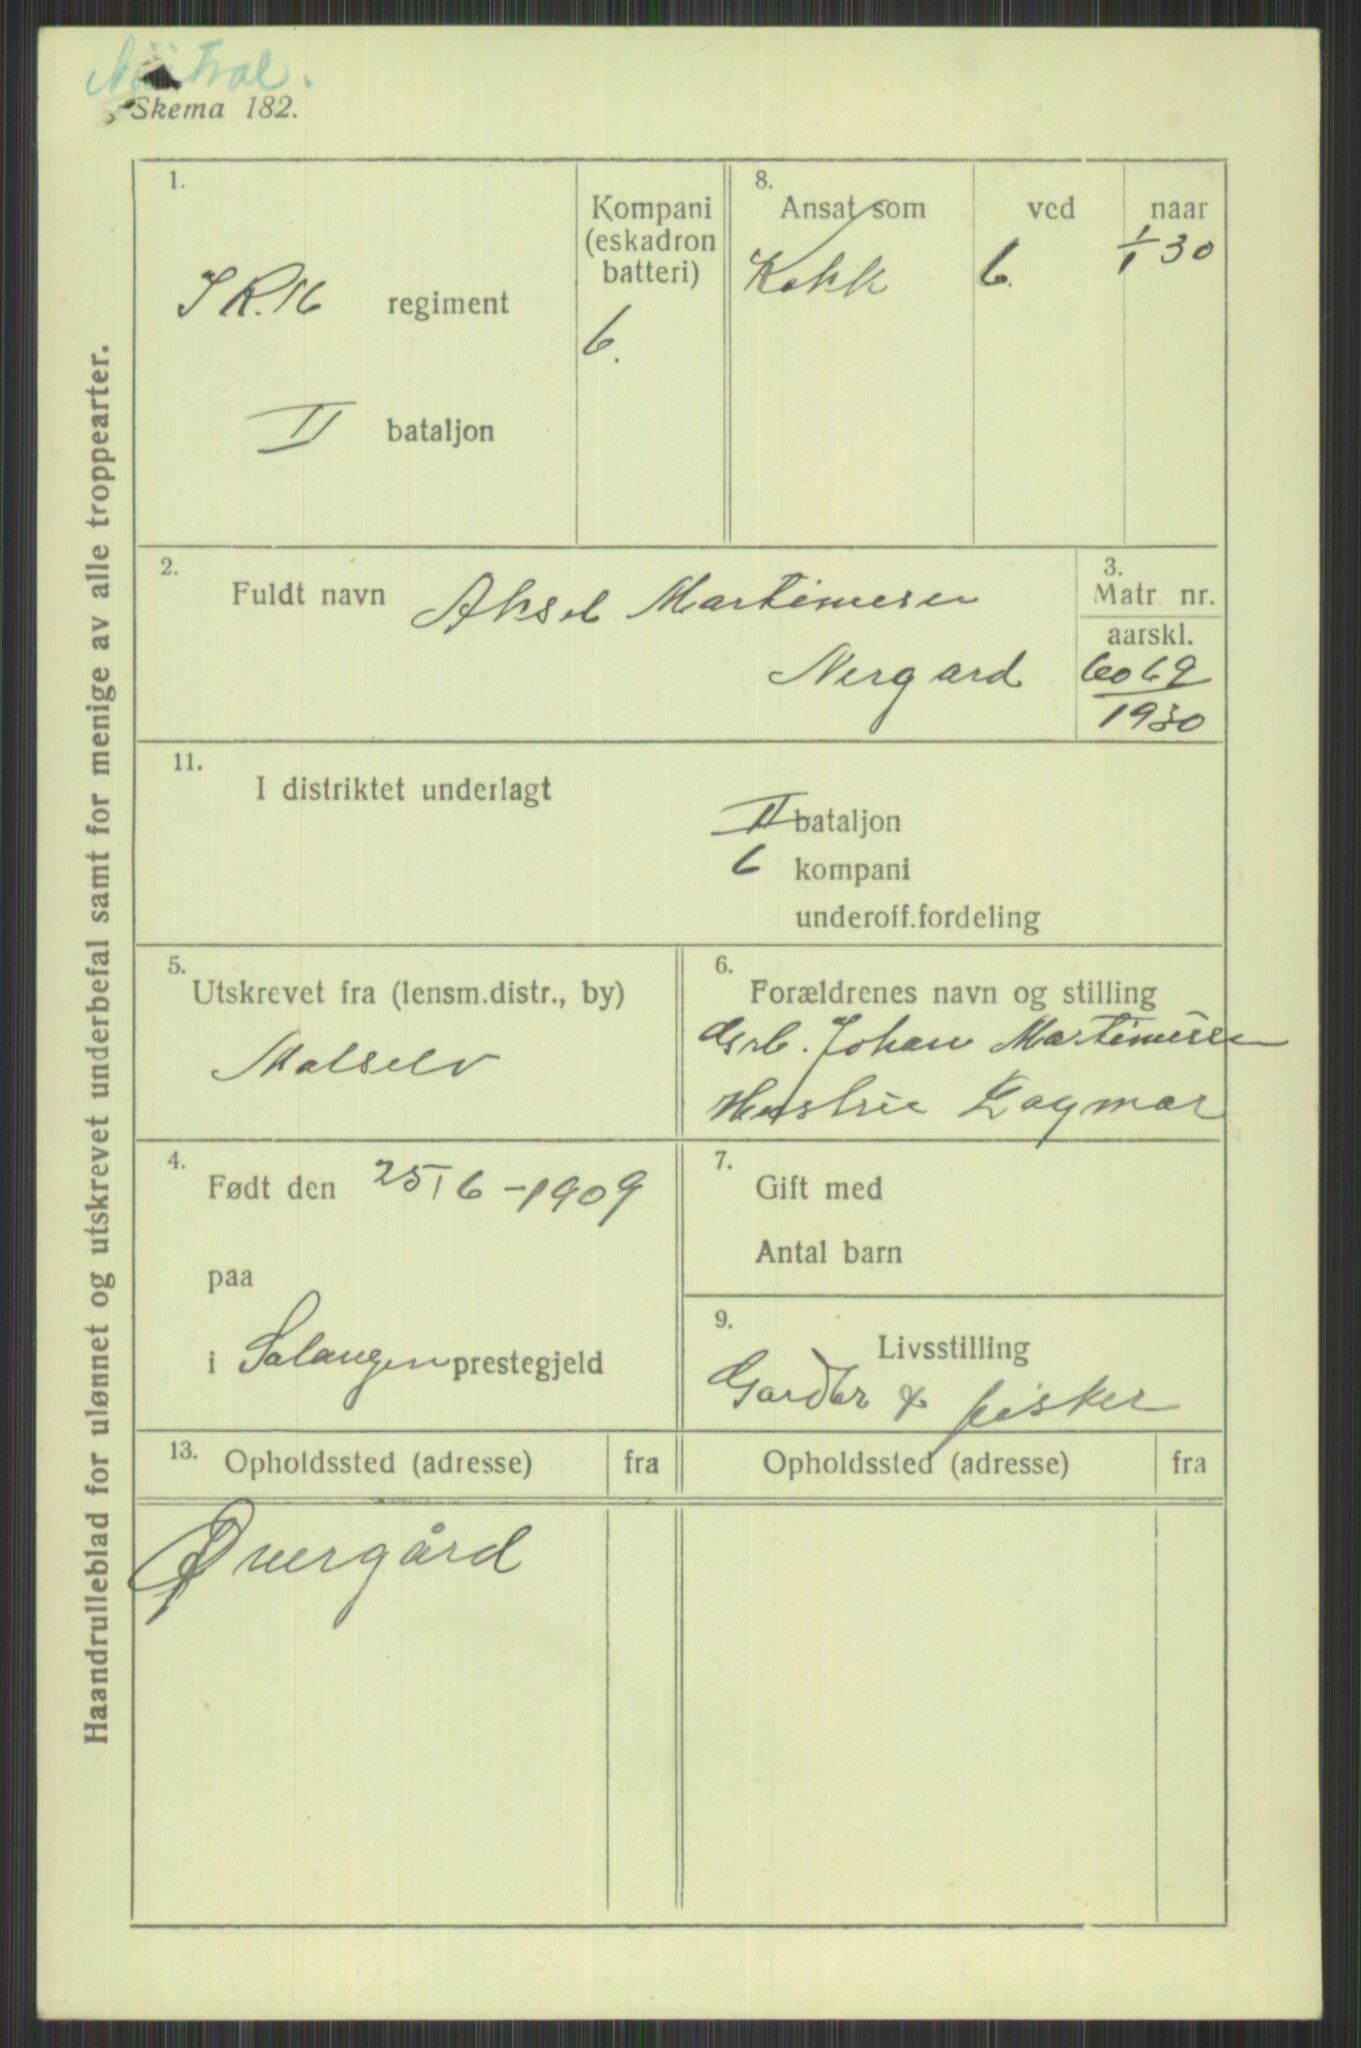 Nøitral.
Skema 182.
Haandrulleblad for ulønnet og utskrevet underbefal samt for menige av alle troppearter.
1.
I R. 16 regiment
II bataljon
Kompani
(eskadron
batteri)
6.
8.
Ansat som
ved
naar
Kokk
6.
1/1 30
2.
Fuldt navn Aksel Martinusen
Nergard
3.
Matr nr.
aarskl.
6069
1930
11.
I distriktet underlagt
II bataljon
6 kompani
underoff.fordeling
5.
Utskrevet fra (lensm.distr., by)
Målselv
6.
Forældrenes navn og stilling
Grb. Johan Martinusen
Hustrue Dagmar
4.
Født den 25/6-1909
paa
i Salangen prestegjeld
7.
Gift med
Antal barn
9.
Livsstilling
Gardbr & fisker
13.
Opholdssted (adresse)
fra
Opholdssted (adresse)
fra
Øvergård